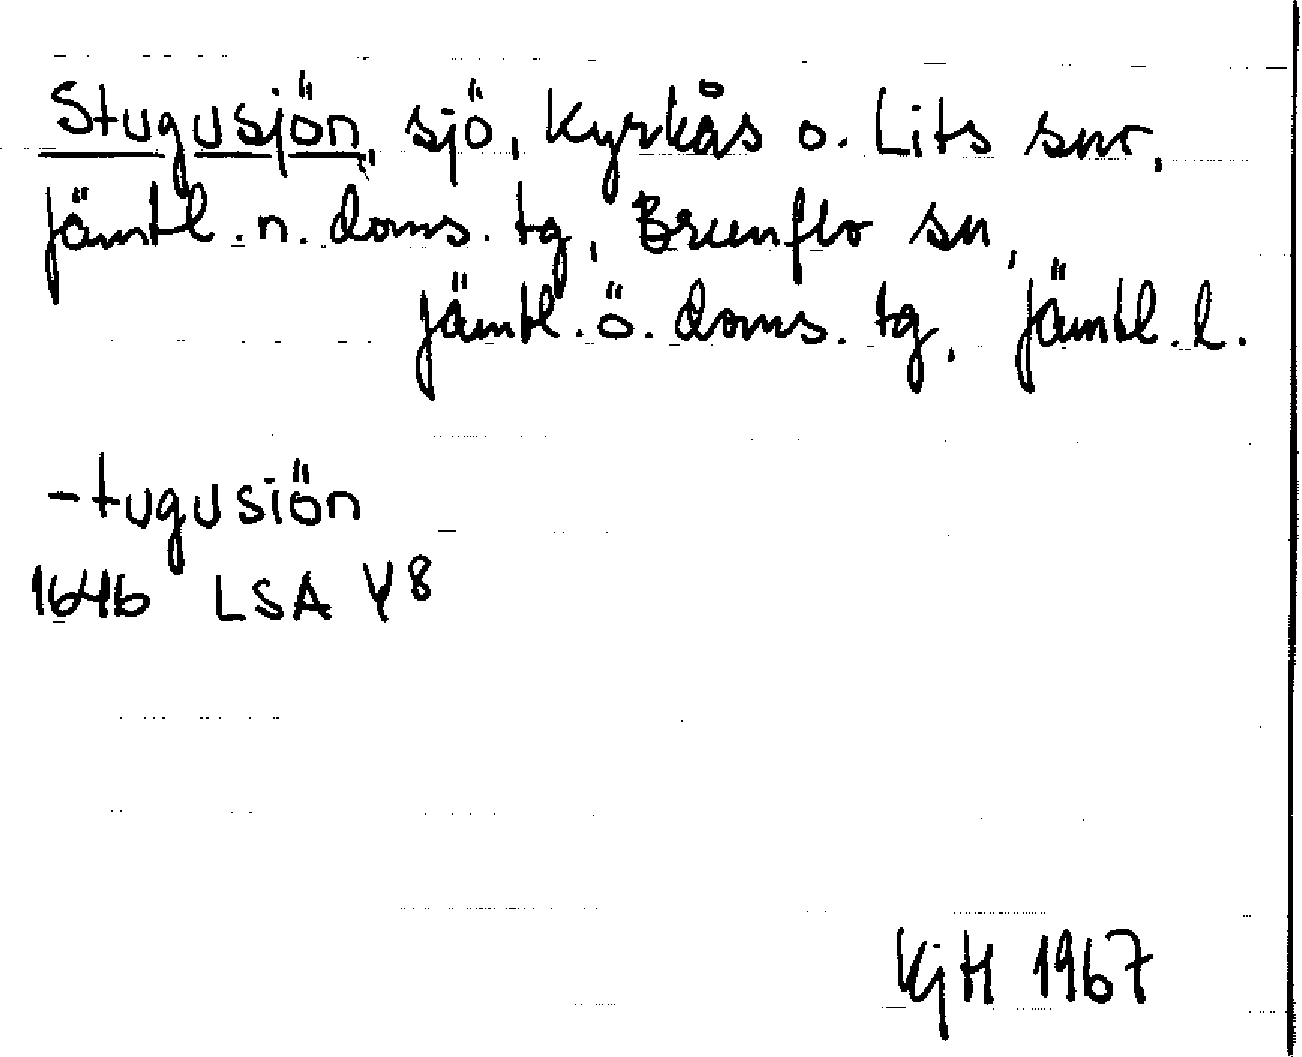 Stugusjön, sjö, Kyrkås o. Lits snr,
Jämtl. n. doms. tg, Brunflo sn,
Jämtl. ö. doms. tg, Jämtl. l.
-tugusiön
1646 LSA Y8
KjH 1967